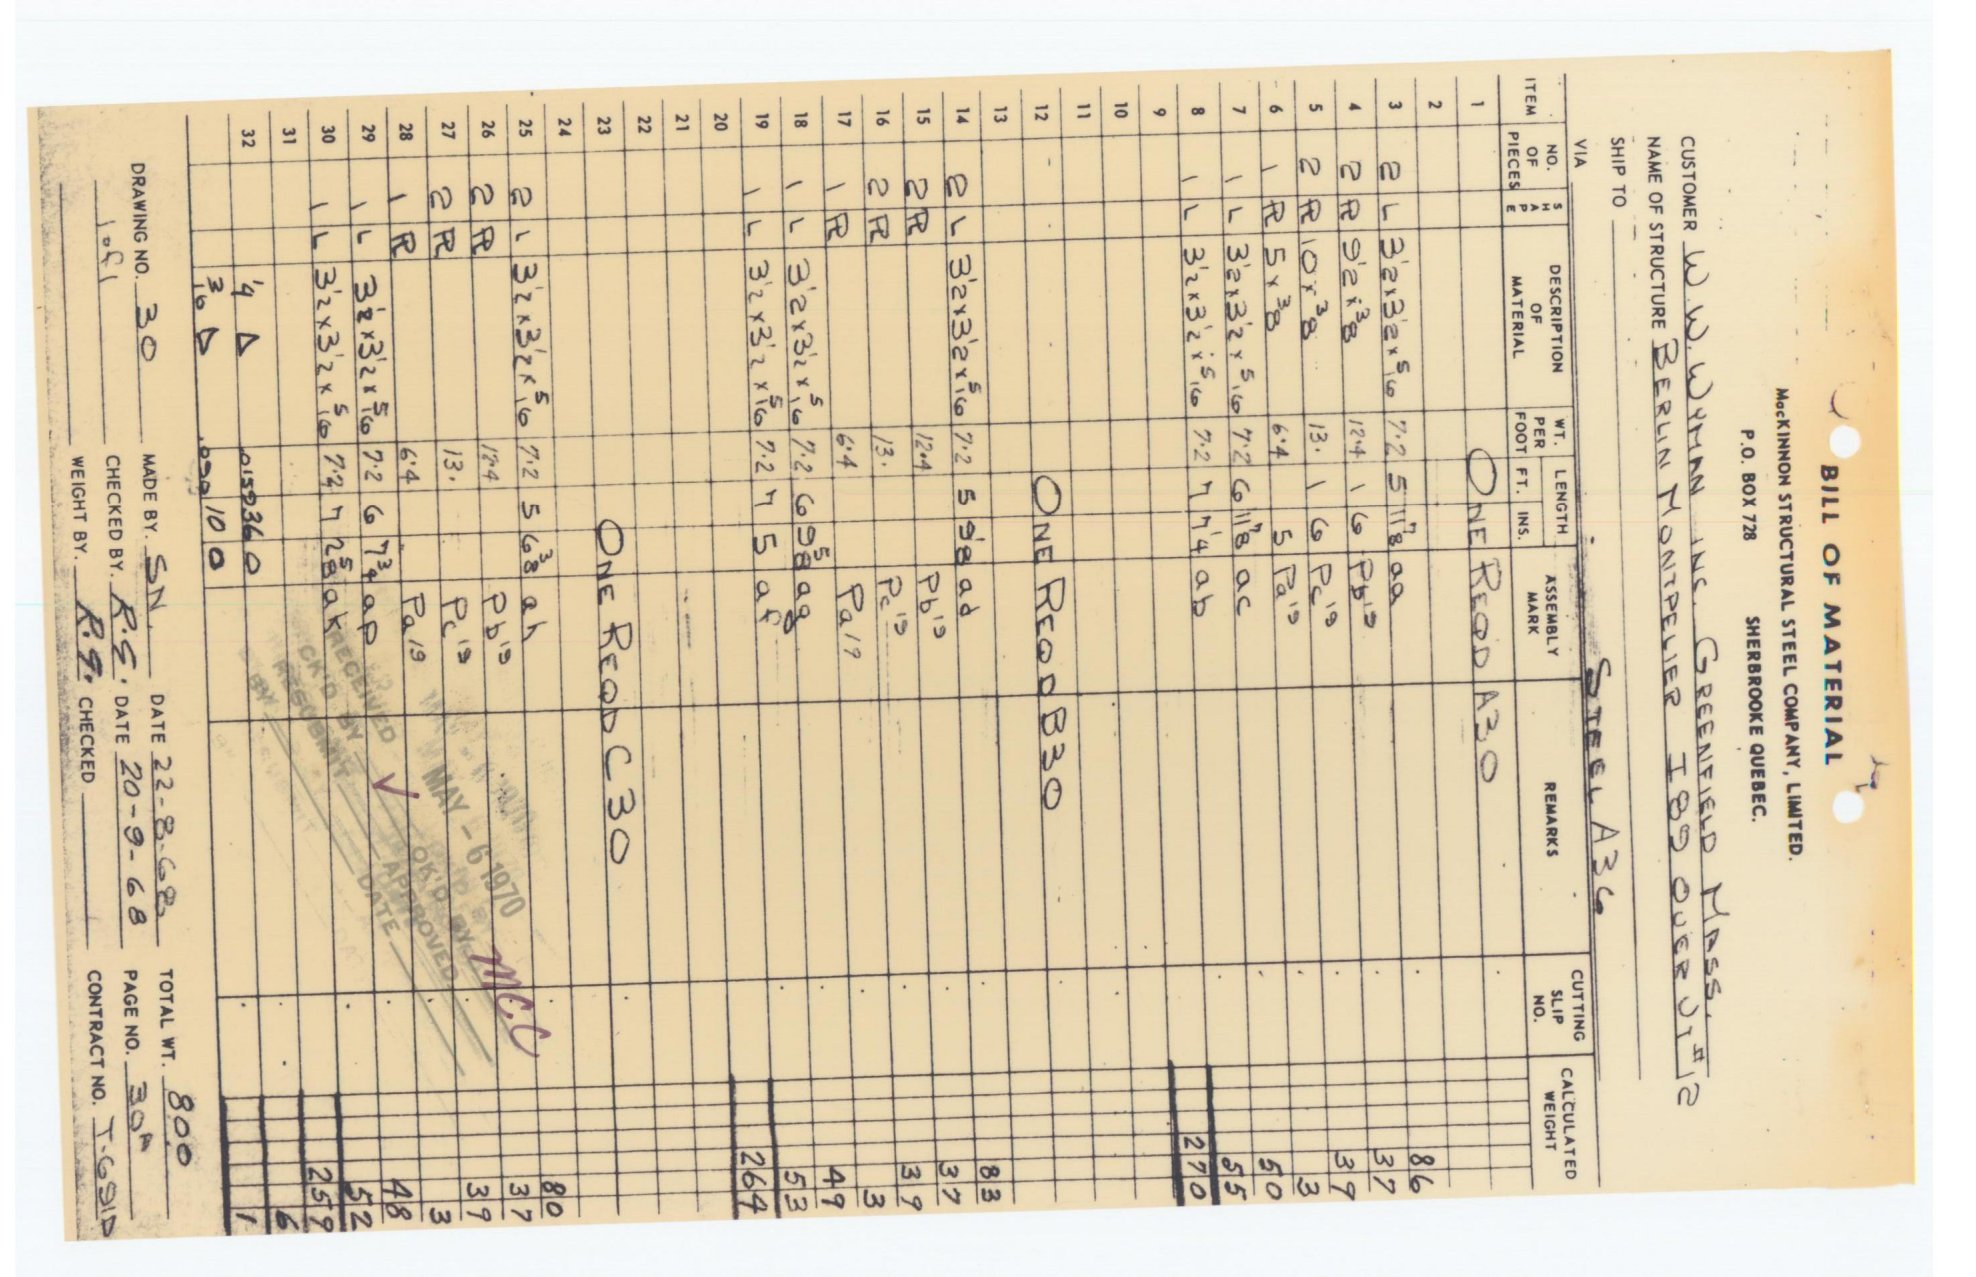 BILL OF MATERIAL
MacKINNON STRUCTURAL STEEL COMPANY, LIMITED.
P.O. BOX 728 SHERBROOKE QUEBEC.
CUSTOMER W.W. WYMAN INC. GREENFIELD MASS.
NAME OF STRUCTURE BERLIN MONTPELIER I 89 OVER VT #12
SHIP TO
VIA STEEL A36
ITEM NO. OF PIECES SHAPE DESCRIPTION OF MATERIAL WT. PER FOOT LENGTH FT. INS. ASSEMBLY MARK REMARKS CUTTING SLIP NO. CALCULATED WEIGHT
1 ONE REQD A30
2
3 2 L 3½x3½x5/16 7.2 5 11⅞ aa 86
4 2 PL 9½x⅜ 12.4 1 6 Pb19 37
5 2 PL 10x⅜ 13. 1 6 Pc19 39
6 1 PL 5x⅜ 6.4 5 Pa19 3
7 1 L 3½x3½x5/16 7.2 6 11⅞ ac 50
8 1 L 3½x3½x5/16 7.2 7 7¼ ab 55
270
9
10
11
12 ONE REQD B30
13
14 2 L 3½x3½x5/16 7.2 5 9⅛ ad 83
15 2 PL 12.4 Pb19 37
16 2 PL 13. Pc19 39
17 1 PL 6.4 Pa19 3
18 1 L 3½x3½x5/16 7.2 6 9⅝ ag 49
19 1 L 3½x3½x5/16 7.2 7 5 af 53
264
20
21
22
23 ONE REQD C30
24
25 2 L 3½x3½x5/16 7.2 5 6⅜ ah 80
26 2 PL 12.4 Pb19 37
27 2 PL 13. Pc19 39
28 1 PL 6.4 Pa19 3
29 1 L 3½x3½x5/16 7.2 6 7¾ ap 48
30 1 L 3½x3½x5/16 7.2 7 2⅝ ak 52
259
31
32 ¼ 0159 36 0 6
3/16 10 0 1
RECEIVED MAY - 6 1970
CK'D BY OK'D BY M.C.C
RESUBMIT APPROVED
BY DATE
DRAWING NO. 30 MADE BY. SN. DATE 22-8-68 TOTAL WT. 800
1 of 1 CHECKED BY. R.S. DATE 20-9-68 PAGE NO. 30A
WEIGHT BY. CHECKED CONTRACT NO.